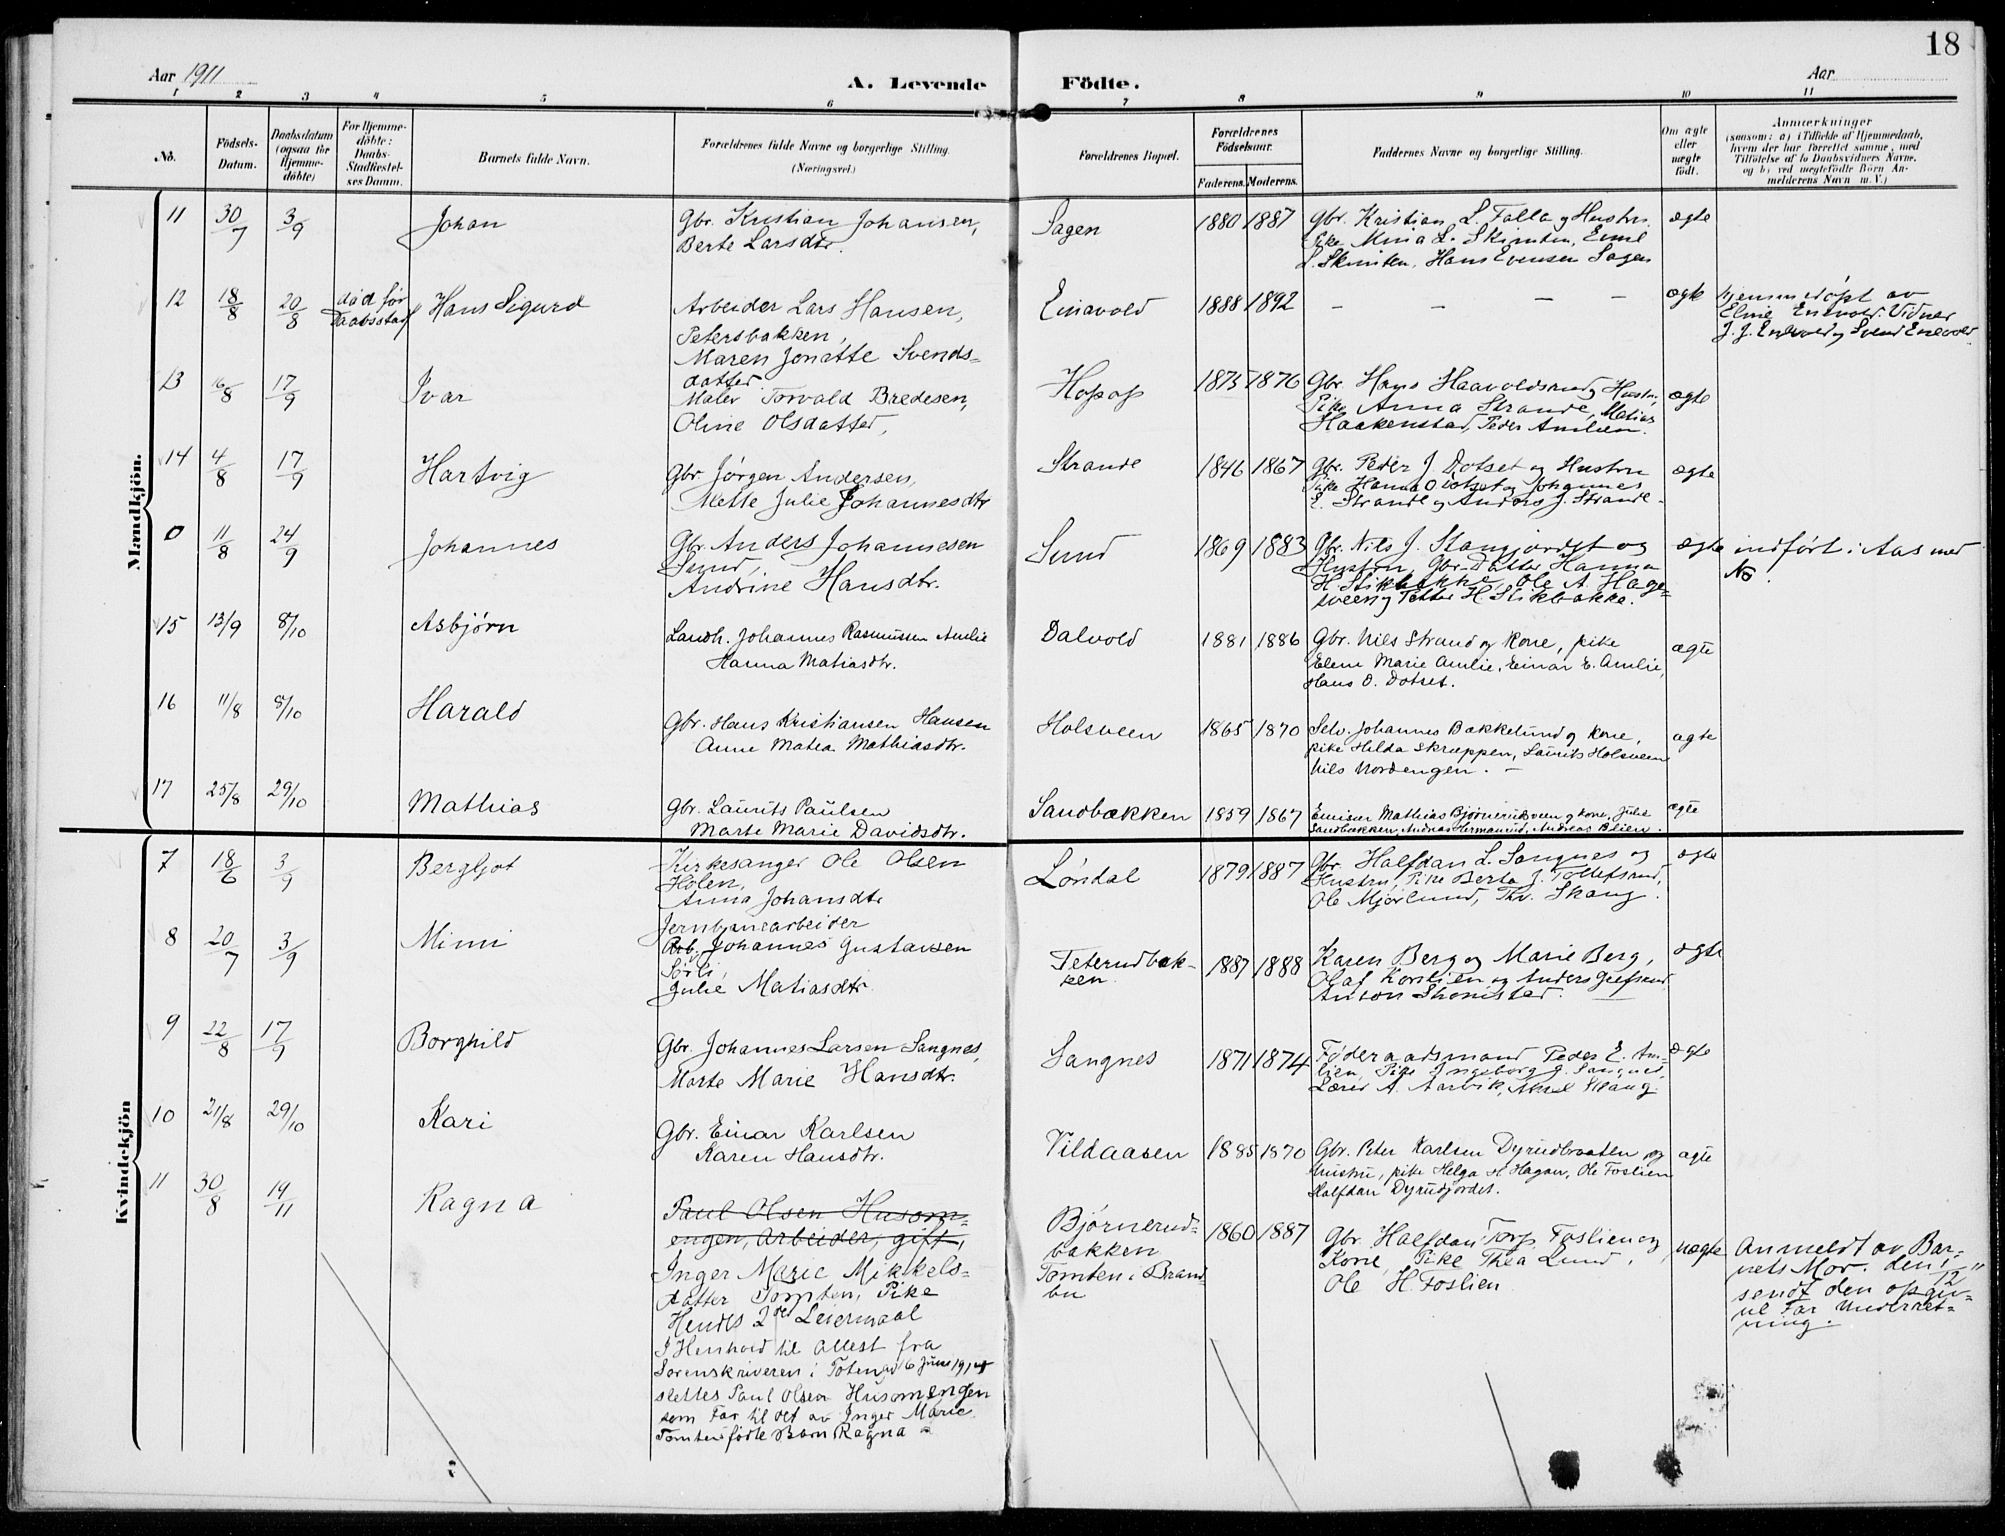 18
Aar 1911
A. Levende Födte.
Aar
1 2 3 4 5 6 7 8 9 10 11
No.
Födsels-Datum.
Daabsdatum (ogsaa for Hjemme-döbte)
For Hjemme-döbte: Daabs-Stadfæstel-ses Datum.
Barnets fulde Navn.
Forældrenes fulde Navne og borgerlige Stilling. (Næringsvei.)
Forældrenes Bopæl.
Forældrenes Födselsaar.
Faderens. Moderens.
Faddernes Navne og borgerlige Stilling.
Om ægte eller uægte födt.
Anmærkninger
(saasom: a) i Tilfælde af Hjemmedaab,
hvem der har forrettet samme, med
Tilföielse af to Daabsvidners Navne,
og b) ved uægtefödte Börn An-
melderens Navn m. V.)
Mandkjön.
11 30/7 3/9 Johan
Gbr. Kristian Johansen,
Berte Larsdtr.
Sagen 1880 1887
Gbr. Kristian L. Falla og Hustru
Pike Mina L. Skimten, Emil
L. Skimten, Hans Evensen Sagen
ægte
12 18/8 20/8 død før Daabsstadf Hans Sigurd
Arbeider Lars Hansen,
Petersbakken,
Maren Jonette Svends-
datter.
Einavold 1888 1892
– – – –
ægte
hjemmedøpt av
Eline Enevold. Vidner
J. J. Enevold og Svend Enevold.
13 16/8 17/9 Ivar
Maler Torvald Bredesen,
Oline Olsdatter,
Hopop 1875 1876
Gbr. Hans Haavoldsrud og Hustru,
Pike Anna Strande, Matias
Haakenstad, Peder Amlien.
ægte
14 4/8 17/9 Hartvig
Gbr Jørgen Andersen,
Mette Julie Johannesdtr
Strande 1846 1867
Gbr. Peder J. Dotset og Hustru
Pike Hanna O Dotset og Johannes
E. Strande og Anders J. Strande.
ægte
0 11/8 24/9 Johannes
Gbr Anders Johannesen
Sund,
Andrine Hansdtr.
Sund 1869 1883
Gbr. Nils J. Stangjordet og
Hustru, Gbr-Datter Hanna
H Stikbakke, Ole A. Hage-
sveen og Petter H Stikbakke.
ægte
indført i Aas med
No.
15 13/9 8/10 Asbjørn
Landh. Johannes Rasmussen Amlie
Hanna Matiasdtr.
Dalvold 1881 1886
Gbr. Nils Strand og Kone, pike
Elene Marie Amlie, Einar E. Amlie,
Hans O. Dotset.
ægte
16 11/8 8/10 Harald
Gbr. Hans Kristiansen Hansen
Anne Matea Mathiasdtr.
Holsveen 1865 1870
Selv. Johannes Bakkelund og Kone,
pike Hilda Skræppen, Laurits Holsveen
Nils Nordengen. –
ægte
17 25/8 29/10 Mathias
Gbr. Laurits Paulsen
Marte Marie Davidsdtr.
Sandbækken 1859 1867
Mathias Bjørnerudsveen og Kone, Julie
Sandbækken, Andreas
ægte
Kvindekjön
7 18/6 3/9 Bergljot
Kirkesanger Ole Olsen
Holen,
Anna Johansdtr
Løndal 1879 1887
Gbr Halfdan L. Sangnes og
Hustru, Pike Berta J. Tollefsrud,
Ole Mjørlund, Thv. Skaug.
ægte
8 20/7 3/9 Mimi
Jernbanearbeider
Arb. Johannes Gustavsen
Sørli,
Julie Matiasdtr.
Feterudbak-
ken. 1887 1888
Karen Berg og Marie Berg,
Olaf Korslien og Anders
Anton
ægte
9 22/8 17/9 Borghild
Gbr. Johannes Larsen Sangnes,
Marte Marie Hansdtr.
Sangnes 1871 1874
Føderaadsmand Peder E. Am-
lien, Pike Ingeborg J. Sangnes,
Lærer A. Aarvik, Aksel Skaug.
ægte
10 21/8 29/10 Kari
Gbr. Einar Karlsen
Karen Hansdtr.
Vildaasen 1885 1870
Gbr. Peter Karlsen Dyrudbraaten og
Hustru, pike Helga H. Hagan, Ole Foslien
Halfdan Dyrudjordet.
ægte
11 30/8 19/11 Ragna
Paul Olsen Husom-
engen, Arbeider, gift,
Inger Marie Mikkels-
datter Tomten, Pike
Hendes 2det Leiermaal
I Henhold til Attest fra
Sorenskriveren i Toten av 6 Juni 1914
slettes Paul Olsen Husomengen
som Far til det av Inger Marie
Tomten fødte Barn Ragna
Bjørnerud-
bakken
Tomten i Brand-
bu 1860 1887
Gbr. Halfdan Torp Foslien og
Kone, Pike Thea Lund,
Ole H. Foslien
uægte
Anmeldt av Bar-
nets Mor. den 1/12 11
sendt den opgiv-
ne Far Underret-
ning.